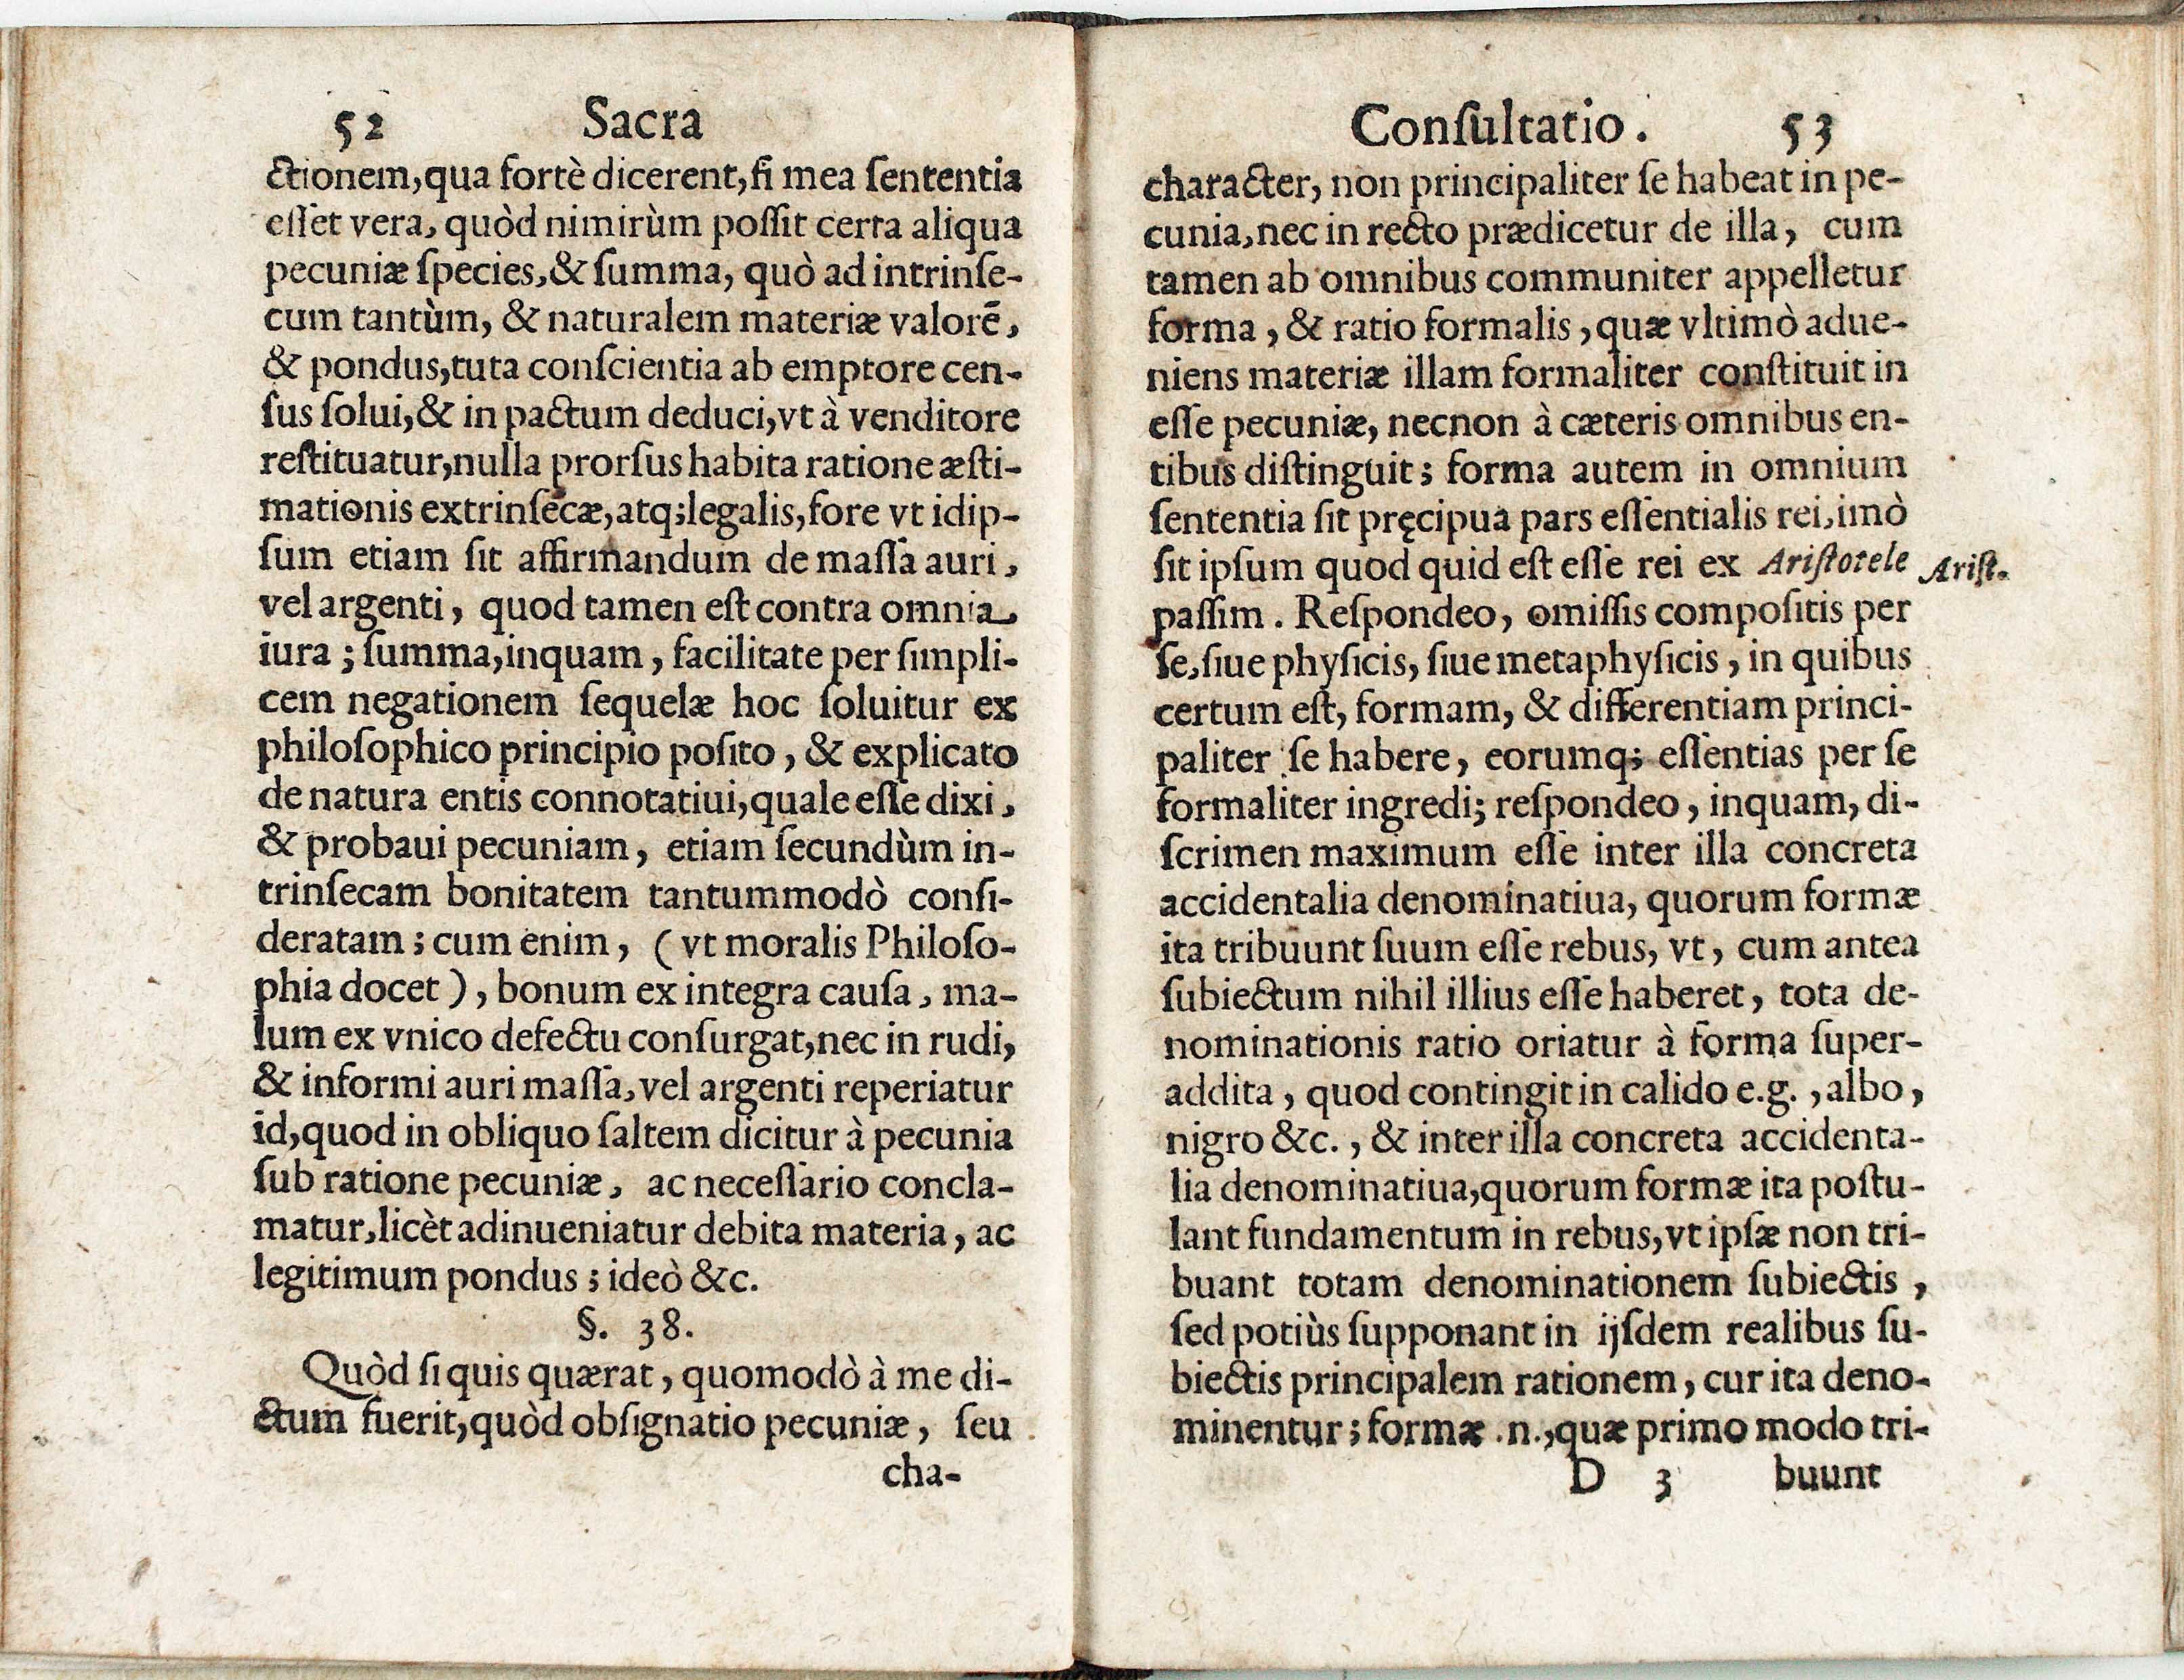 52 Sacra
ctionem, qua fortè dicerent, ſi mea ſententia
eſſet vera, quòd nimirùm poſſit certa aliqua
pecuniæ ſpecies, & ſumma, quò ad intrinſe-
cum tantùm, & naturalem materiæ valorē,
& pondus, tuta conſcientia ab emptore cen-
ſus ſolui, & in pactum deduci, vt à venditore
reſtituatur, nulla prorſus habita ratione æſti-
mationis extrinſecæ, atq; legalis, fore vt idip-
ſum etiam ſit affirmandum de maſſa auri,
vel argenti, quod tamen eſt contra omnia
iura; ſumma, inquam, facilitate per ſimpli-
cem negationem ſequelæ hoc ſoluitur ex
philoſophico principio poſito, & explicato
de natura entis connotatiui, quale eſſe dixi,
& probaui pecuniam, etiam ſecundùm in-
trinſecam bonitatem tantummodò conſi-
deratam; cum enim, (vt moralis Philoſo-
phia docet), bonum ex integra cauſa, ma-
lum ex vnico defectu conſurgat, nec in rudi,
& informi auri maſſa, vel argenti reperiatur
id, quod in obliquo ſaltem dicitur à pecunia
ſub ratione pecuniæ, ac neceſſario concla-
matur, licèt adinueniatur debita materia, ac
legitimum pondus; ideò &c.
§. 38.
Quòd ſi quis quærat, quomodò à me di-
ctum fuerit, quòd obſignatio pecuniæ, ſeu
cha-
Conſultatio. 53
character, non principaliter ſe habeat in pe-
cunia, nec in recto prædicetur de illa, cum
tamen ab omnibus communiter appelletur
forma, & ratio formalis, quæ vltimò adue-
niens materiæ illam formaliter conſtituit in
eſſe pecuniæ, necnon à cæteris omnibus en-
tibus diſtinguit; forma autem in omnium
ſententia ſit pręcipua pars eſſentialis rei, imò
ſit ipſum quod quid eſt eſſe rei ex Ariſtotele Ariſt.
paſſim. Reſpondeo, omiſſis compoſitis per
ſe, ſiue phyſicis, ſiue metaphyſicis, in quibus
certum eſt, formam, & differentiam princi-
paliter ſe habere, eorumq; eſſentias per ſe
formaliter ingredi; reſpondeo, inquam, di-
ſcrimen maximum eſſe inter illa concreta
accidentalia denominatiua, quorum formæ
ita tribuunt ſuum eſſe rebus, vt, cum antea
ſubiectum nihil illius eſſe haberet, tota de-
nominationis ratio oriatur à forma ſuper-
addita, quod contingit in calido e.g., albo,
nigro &c., & inter illa concreta accidenta-
lia denominatiua, quorum formæ ita poſtu-
lant fundamentum in rebus, vt ipſæ non tri-
buant totam denominationem ſubiectis,
ſed potiùs ſupponant in ijſdem realibus ſu-
biectis principalem rationem, cur ita deno-
minentur; formæ .n., quæ primo modo tri-
D 3 buunt